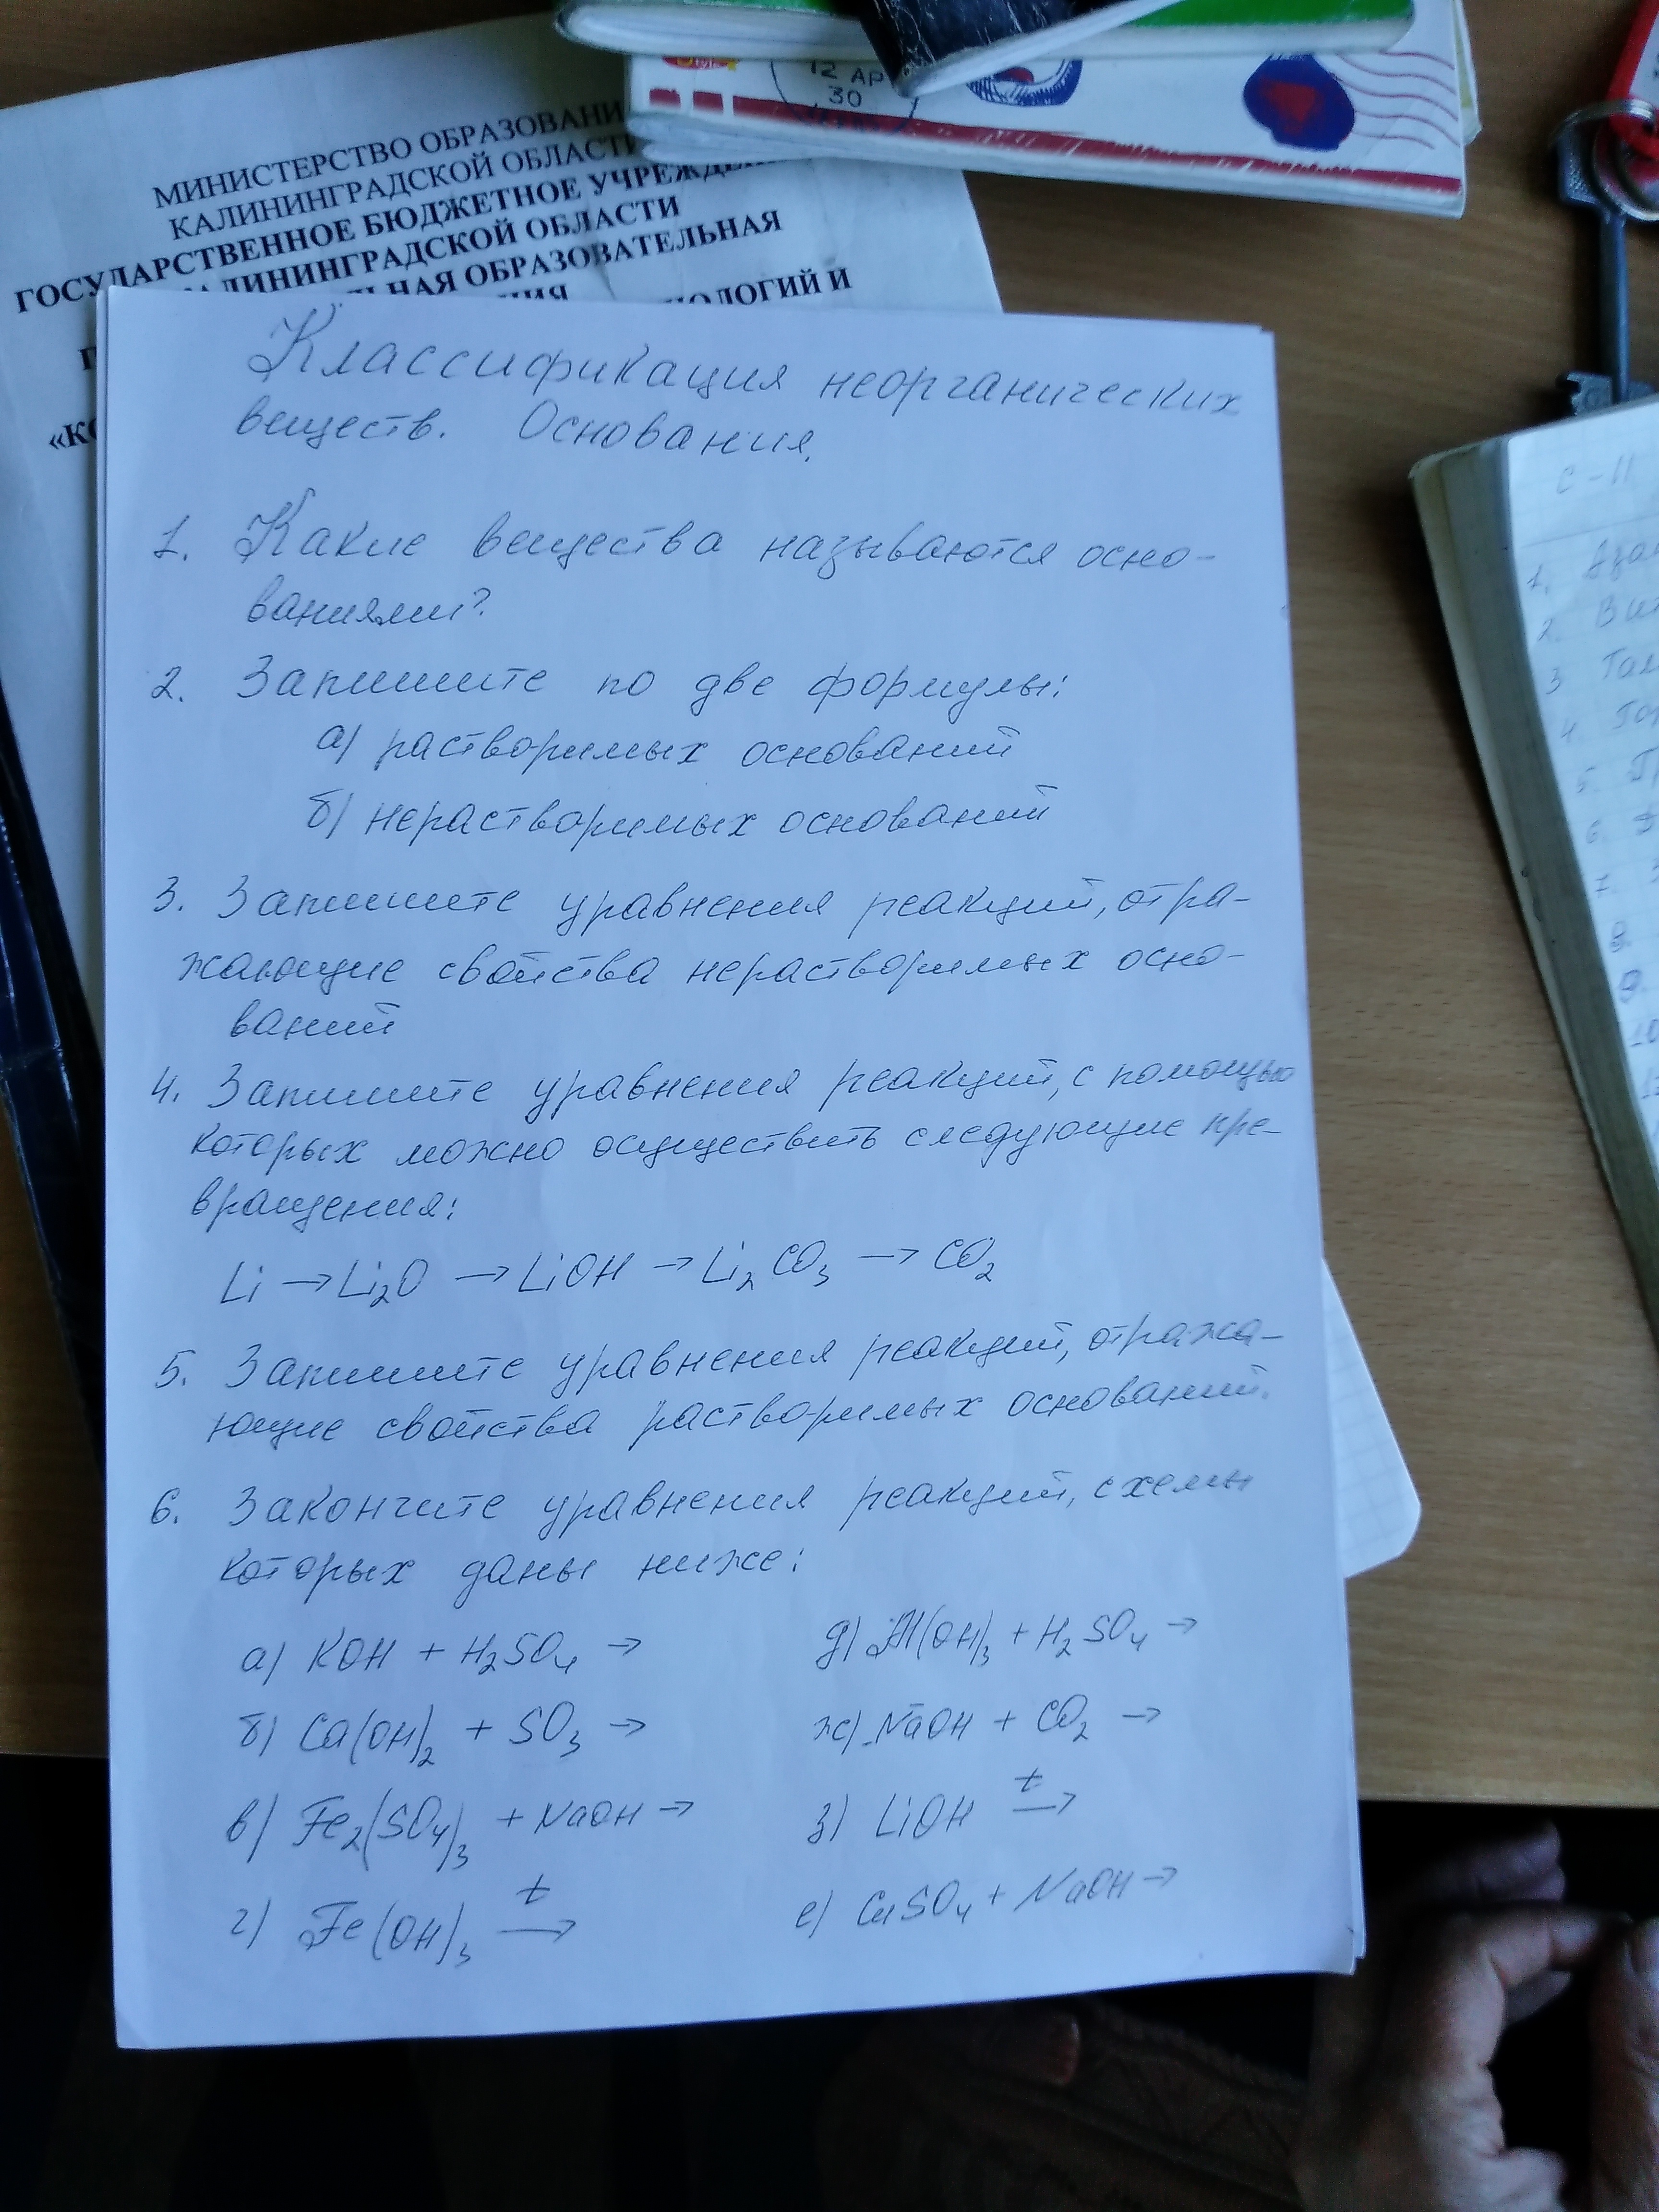 12 АР
30
МИНИСТЕРСТВО
КАЛИНИНГРАДСКОЙ ОБЛАСТИ
ГОСУДАРСТВЕННОЕ БЮДЖЕТНОЕ
КАЛИНИНГРАДСКОЙ ОБЛАСТИ
ОБРАЗОВАТЕЛЬНАЯ
И
Классификация неорганических
веществ. Основания.
1. Какие вещества называются осно-
ваниями?
2. Запишите по две формулы:
а) растворимых оснований
б) нерастворимых оснований
3. Запишите уравнения реакций, отра-
жающие свойства нерастворимых осно-
ваний
4. Запишите уравнения реакций, с помощью
которых можно осуществить следующие пре-
вращения:
Li → Li₂O → LiOH → Li₂CO₃ → CO₂
5. Запишите уравнения реакций, отража-
ющие свойства растворимых оснований.
6. Закончите уравнения реакций, схемы
которых даны ниже:
а) KOH + H₂SO₄ →
д) Al(OH)₃ + H₂SO₄ →
б) Ca(OH)₂ + SO₃ →
ж) NaOH + CO₂ →
в) Fe₂(SO₄)₃ + NaOH →
з) LiOH t→
г) Fe(OH)₃ t→
е) CuSO₄ + NaOH →
с-11
1.
2.
3
4
5.
6.
7.
8.
9.
10